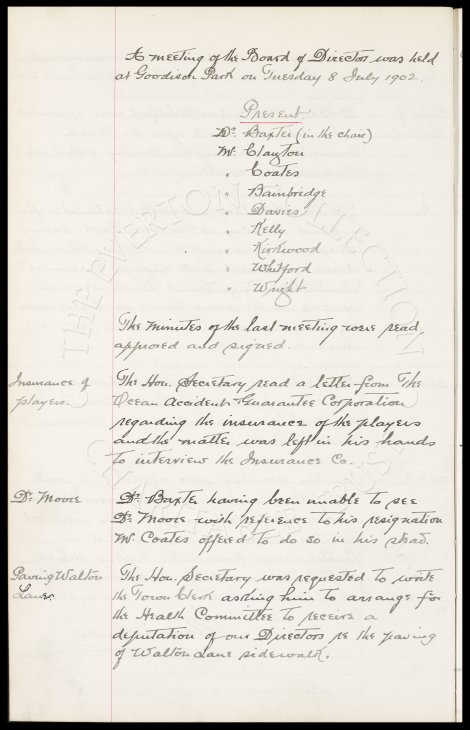 A meeting of the Board of Directors was held
at Goodison Park on Tuesday 8 July 1902.
Present
Dr. Baxter (in the chair)
Mr. Clayton
" Coates
" Bainbridge
" Davies
" Kelly
" Kirkwood
" Whitford
" Wright
The minutes of the last meeting were read
approved and signed.
Insurance of
players.
The Hon. Secretary read a letter from The
Ocean Accident & Guarantee Corporation
regarding the insurance of the players
and the matter was left in his hands
to interview the Insurance Co.
Dr. Moore
Dr. Baxter having been unable to see
Dr. Moore with reference to his resignation
Mr. Coates offered to do so in his stead.
Paving Walton
Lane
The Hon. Secretary was requested to write
the Town Clerk asking him to arrange for
the Health Committee to receive a
deputation of our Directors re the paving
of Walton Lane sidewalk.
THE EVERTON COLLECTION